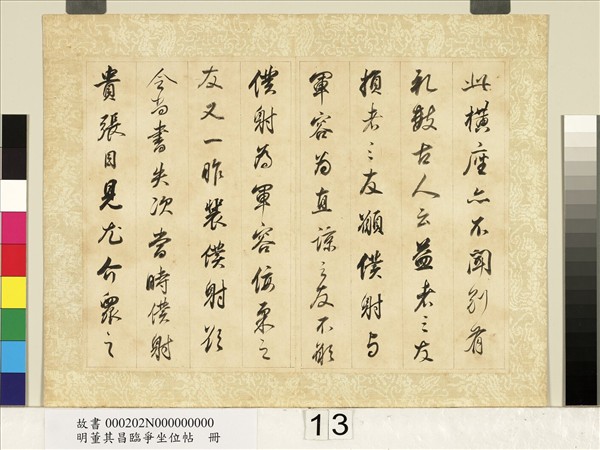 此橫座亦不聞別有
礼數古人云益者三友
損者三友願僕射与
軍容為直諒之友不願
僕射為軍容佞柔之
友又一昨裴僕射欲
令尚書失次當時僕射
貴張目見尤介眾之
故書 000202N000000000
明董其昌臨爭坐位帖 冊
13